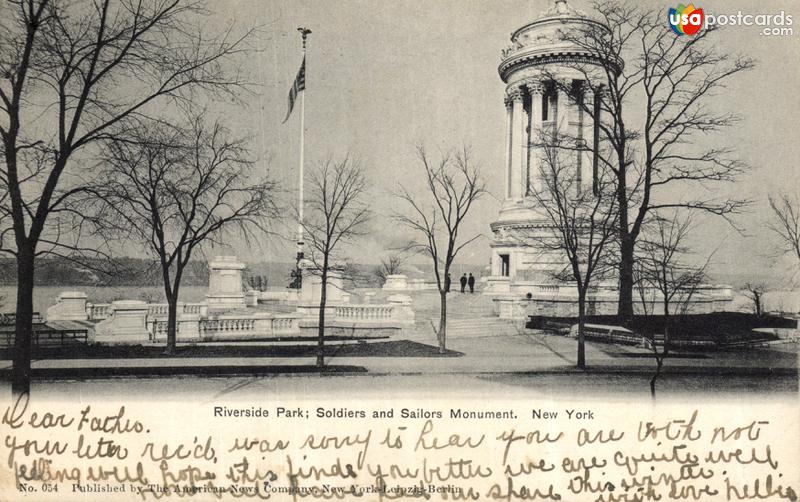 usapostcards.com
Riverside Park; Soldiers and Sailors Monument. New York
Dear Father.
your letter rec'd, was sorry to hear you are both not
feeling well hope this finds you better we are quite well
share this winter
with love Nellie
No. 054 Published by The American News Company, New York-Leipzig-Berlin